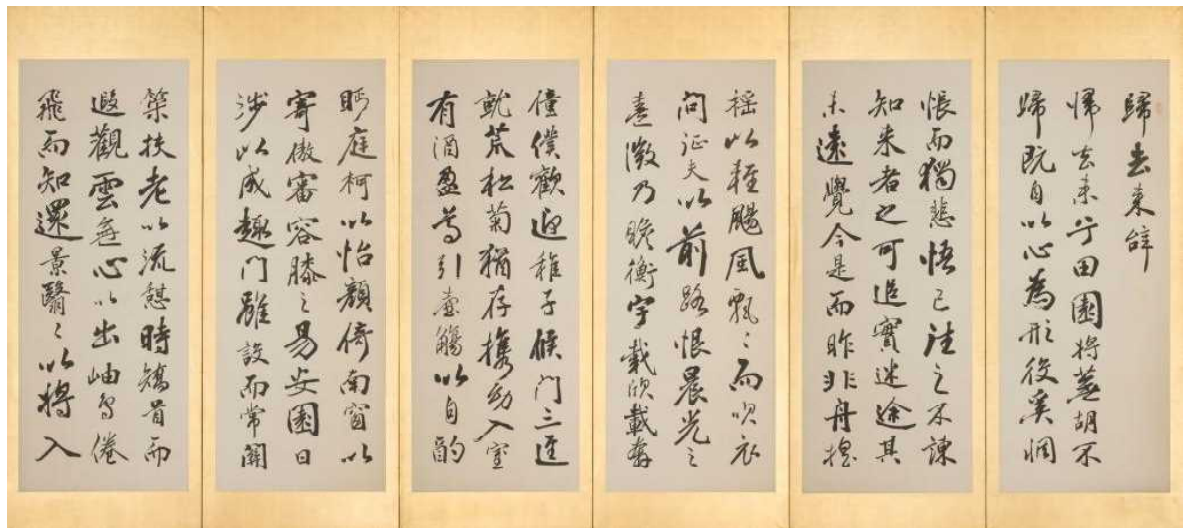 歸去来辞
帰去来兮田園将蕪胡不
歸既自以心為形役奚惆
悵而獨悲悟已往之不諫
知来者之可追實迷途其
未遠覺今是而昨非舟揺
揺以軽颺風飄〻而吹衣
问征夫以前路恨晨光之
熹微乃瞻衡宇載欣載奔
僮僕歡迎稚子候门三逕
就荒松菊猶存携幼入室
有酒盈尊引壺觴以自酌
眄庭柯以怡顔倚南窗以
寄傲審容膝之易安園日
渉以成趣门雖設而常關
策扶老以流憩時矯首而
遐觀雲無心以出岫鳥倦
飛而知還景翳〻以将入